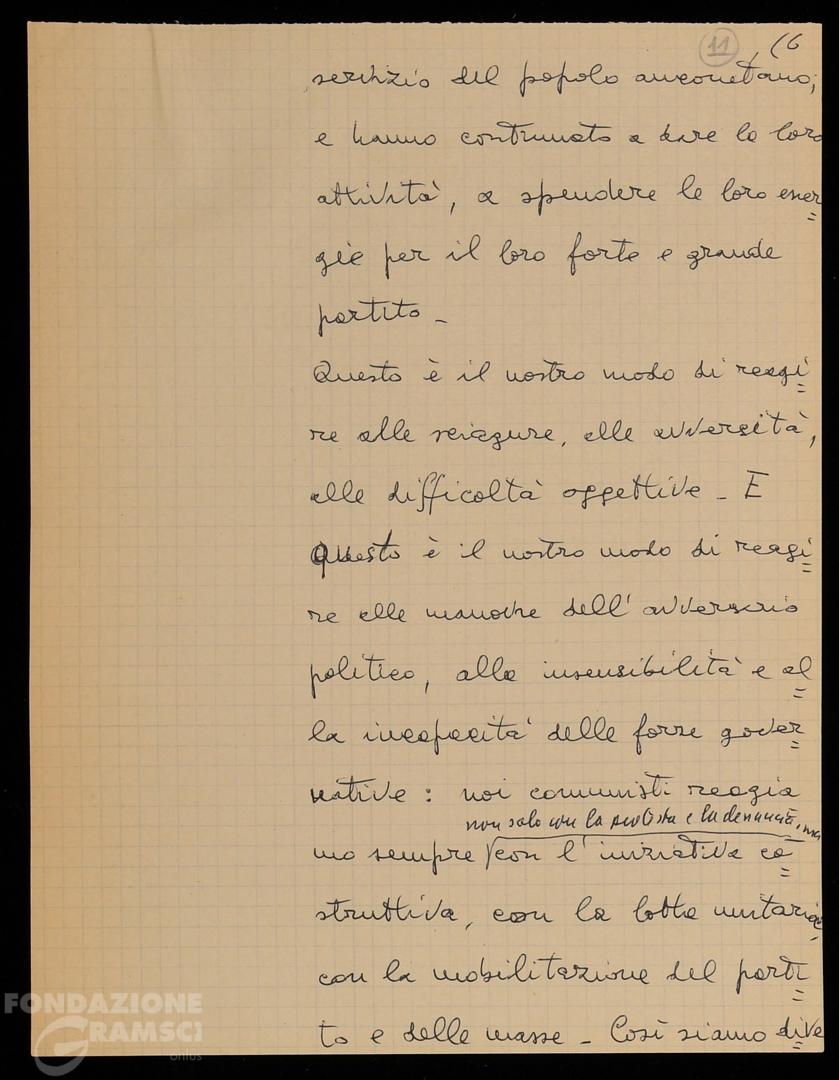 11 16
servizio del popolo anconetano;
e hanno continuato a dare la loro
attività, a spendere le loro ener=
gie per il loro forte e grande
partito -
Questo è il nostro modo di reagi=
re alle sciagure, alle avversità,
alle difficoltà oggettive - E
questo è il nostro modo di reagi=
re alle manovre dell'avversario
politico, alla insensibilità e al=
la incapacità delle forze gover=
native: noi comunisti reagia=
non solo con la protesta e la denuncia, ma
mo sempre con l'iniziativa co=
struttiva, con la lotta unitaria,
con la mobilitazione del parti=
to e delle masse - Così siamo dive
FONDAZIONE
GRAMSCI
onlus